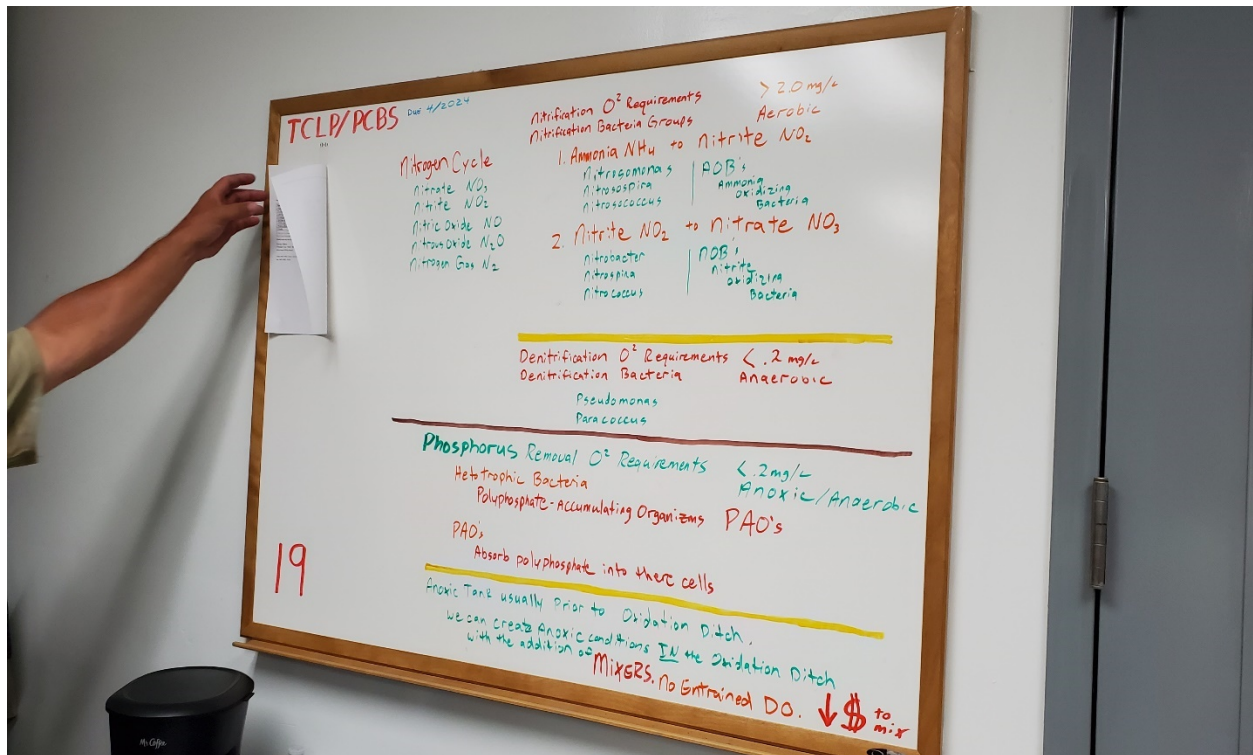 TCLP/PCBS DUE 4/2024
Nitrogen Cycle
Nitrate NO3
Nitrite NO2
Nitric Oxide NO
Nitrous Oxide N2O
Nitrogen Gas N2
Nitrification O² Requirements > 2.0 mg/L
Nitrification Bacteria Groups Aerobic
1. Ammonia NH4 to Nitrite NO2
Nitrosomonas
Nitrosospira
Nitrosococcus
AOB's
Ammonia
Oxidizing
Bacteria
2. Nitrite NO2 to Nitrate NO3
Nitrobacter
Nitrospira
Nitrococcus
NOB's
Nitrite
Oxidizing
Bacteria
Denitrification O² Requirements < .2 mg/L
Denitrification Bacteria Anaerobic
Pseudomonas
Paracoccus
Phosphorus Removal O² Requirements < .2 mg/L
Anoxic/Anaerobic
Hetotrophic Bacteria
Polyphosphate-Accumulating Organizms PAO's
PAO's
Absorb polyphosphate into there cells
19
Anoxic Tank usually Prior to Oxidation Ditch.
We can create Anoxic conditions IN the Oxidation Ditch
with the addition of MIXERS. No Entrained DO. ↓ $ to mix
Mr. Coffee